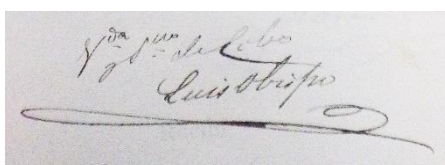 V.da y S.nos de Cobo
Luis Obispo